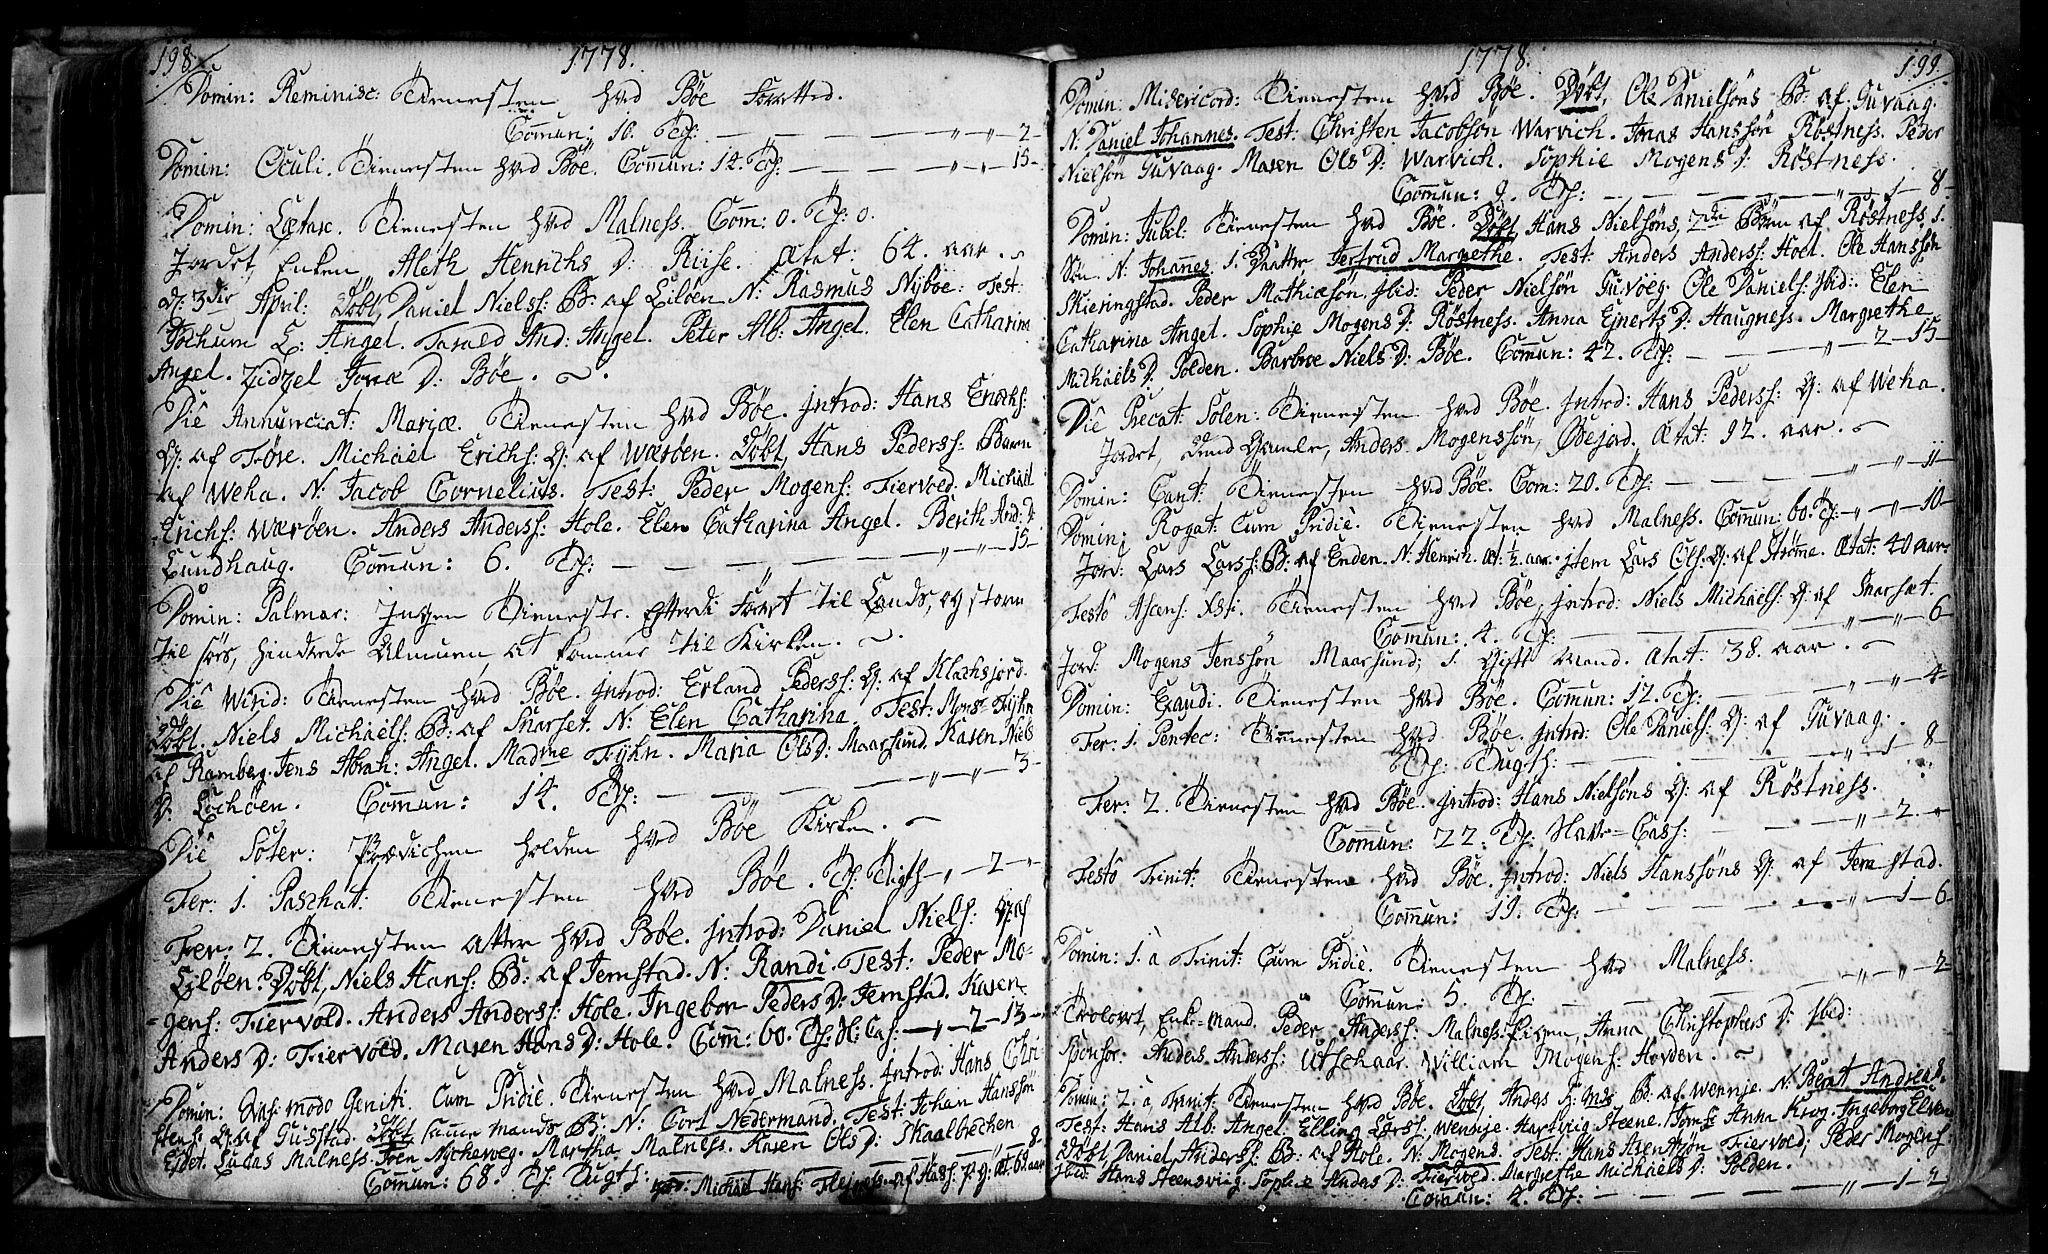 198
1778.
Domin: Reminisc: Tienesten hved Böe forretted.
Com̄un: 10. Tf: — — — — „ — „ — 2 —
Domin: Oculi. Tienesten hved Böe. Com̄un: 14. Tf: — — — — „ — „ — 15 —
Domin: Lætare. Tienesten hved Malness. Com̄: 0. Tf: 0.
Jordet, Enken Aleth Henrichs D: Riise. Ætat: 64. aar.
d: 3die April: Döbt, Daniel Niels: B: af Lilöen N: Rasmus Nyboe. Test:
Jochum L: Angel. Tarald And: Angel. Peter Alb: Angel. Elen Catharina
Angel. Zidzel Jonæ D: Böe.
Die Annunciat: Mariæ. Tienesten hved Böe. Introd: Hans Erichs:
Q: af Tröe. Michael Erichs: Q: af Wæröen. Döbt, Hans Peders: Barn
af Weha. N: Jacob Cornelius. Test: Peder Mogens: Tiervold. Michael
Erichs: Wæröen. Anders Anders: Hole. Elen Catharina Angel. Berith And: D:
Lundhaug. Com̄un: 6. Tf: — — — „ — „ — 15 —
Domin: Palmar: Ingen Tieneste. Efterdi Förret til Lands, og storm
til söes, hindrede Almuen at komme til Kirken.
Die Virid: Tienesten hved Böe. Introd: Erland Peders: Q: af Klachsjord.
Döbt, Niels Michaels: B: af Snarset. N: Elen Catharina. Test: Monsr Fryhn
af Ramberg. Jens Abrah: Angel. Madme Fryhn. Maria Ols D: Maarsund. Karen Niels
D: Lochöen. Com̄un: 14. Tf: — — — „ — „ — 3 —
Die Soter: Prædichen holden hved Böe Kirken.
Fer: 1. Paschat: Tienesten hved Böe. Tf: Dugth — „ — 2 — „
Fer: 2. Tienesten atter hved Böe. Introd: Daniel Niels: Q: af
Lilöen. Döbt, Niels Hans: B: af Jemstad. N: Randi. Test: Peder Mo-
gens: Tiervold. Anders Anders: Hole. Ingebor Peders D: Jemstad. Karen
Anders D: Tiervold. Maren Hans D: Hole. Com̄: 60. Tf: H: Cas: — „ — 2 — 13 —
Domin: Qvasi modo Geniti. Cum Pridie. Tienesten hved Malness. Introd: Hans Chri
stens: Q: af Gustad. Döbt samme mands B: N: Cort Nedermand. Test: Johan Hanssön
Eidet. Lucas Malness. Iven Nychaveg. Martha Malness. Karen Ols D: Skaalbrechen.
Com̄un: 68. Tf: Dugth: — — 8
Jord: Michael Hans: Flejnes af Hass: æt: 68 aar
199
1778.
Domin: Misericord: Tienesten hved Böe. Döbt, Ole Danielsöns B: af Guvaag.
N: Daniel Johannes. Test: Christen Jacobsön Warvich. Jonas Hanssön Röstness. Peder
Nielsön Guvaag. Maren Ols D: Warvich. Sophie Mogens D: Röstness.
Com̄un: 9. Tf: — — — — „ — 1 — 8 —
Domin: Jubil: Tienesten hved Böe. Döbt, Hans Nielsöns, 2de Börn af Röstness, 1.
Sön N: Johannes. 1. Daatter, Jertrud Margrethe. Test: Anders Anders: Hoel. Ole Hanssön
Skieringstad. Peder Mathiæsön. Ibid: Peder Nielsön Guvoeg. Ole Daniels: Ibid: Elen
Catharina Angel. Sophie Mogens D: Röstness. Anna Ejnerts D: Haugness. Margrethe
Michaels D: Polden. Barbroe Niels D: Böe. Com̄un: 42. Tf: — — „ — 2 — 15 —
Die Precat: Solen: Tienesten hved Böe. Introd: Hans Peders: Q: af Weha.
Jordet, dend Gamle, Anders Mogenssön, Ödejord. Ætat: 92. aar.
Domin: Cant: Tienesten hved Böe. Com: 20. Tf: — — — „ — „ — 11 —
Domin: Rogat: Cum Pridiè. Tienesten hved Malness. Com̄un: 60. Tf: — „ — „ — 10 —
Jord: Lars Lars: B: af Enden. N: Henrich. æt: ½. aar. item Lars Ols: Q: af Ström̄e. Ætat: 40 aar
Festô Ascens: Xsti. Tienesten hved Böe, Introd: Niels Michaels: Q: af Snarset.
Com̄un: 4. Tf: — — — „ — „ — 6
Jord: Mogens Jenssön Maarsund; 1. Gift Mand. Ætat: 38. aar.
Domin: Exaudi. Tienesten hved Böe. Com̄un: 12. Tf: — — „ — „ — 4 —
Fer: 1. Pentec: Tienesten hved Böe. Introd: Ole Daniels: Q: af Guvaag.
Tf: Dugth: — — — „ — 1 — 8 —
Fer: 2. Tienesten hved Böe. Introd: Hans Nielsöns Q: af Röstness.
Com̄un: 22. Tf: Have-Cass: — — — „ — 2 — „
Festô Trinit: Tienesten hved Böe. Introd: Niels Hanssöns Q: af Jemstad.
Com̄un: 19. Tf: — — — „ — 1 — 6
Domin: 1. à Trinit: Cum Pridiè. Tienesten hved Malness.
Com̄un: 5. Tf: — — — „ — „ — 2
Trolovet, Enke-mand Peder Anders: Malness. Pigen, Anna Christophers D: Ibid:
Sponsor: Anders Anders: Utschaar. William Mogens: Hovden.
Domin: 2. à Trinit: Tienesten hved Böe. Döbt, Anders B: af Wennje. N: Berit Andrea.
Test: Hans Alb: Angel. Elling Lars: Wennje. Hartvig Steene. Anna Krog. Ingeborg
Döbt, Daniel Anders: B: af Hole. N: Mogens. Test: Hans Tiervold; Peder Mogens:
Ibid: Hans Steensviig. Sophie Anders D: Tiervold. Margrethe Michaels D: Polden.
Com̄un: 2. Tf: — — — „ — 1 — 2